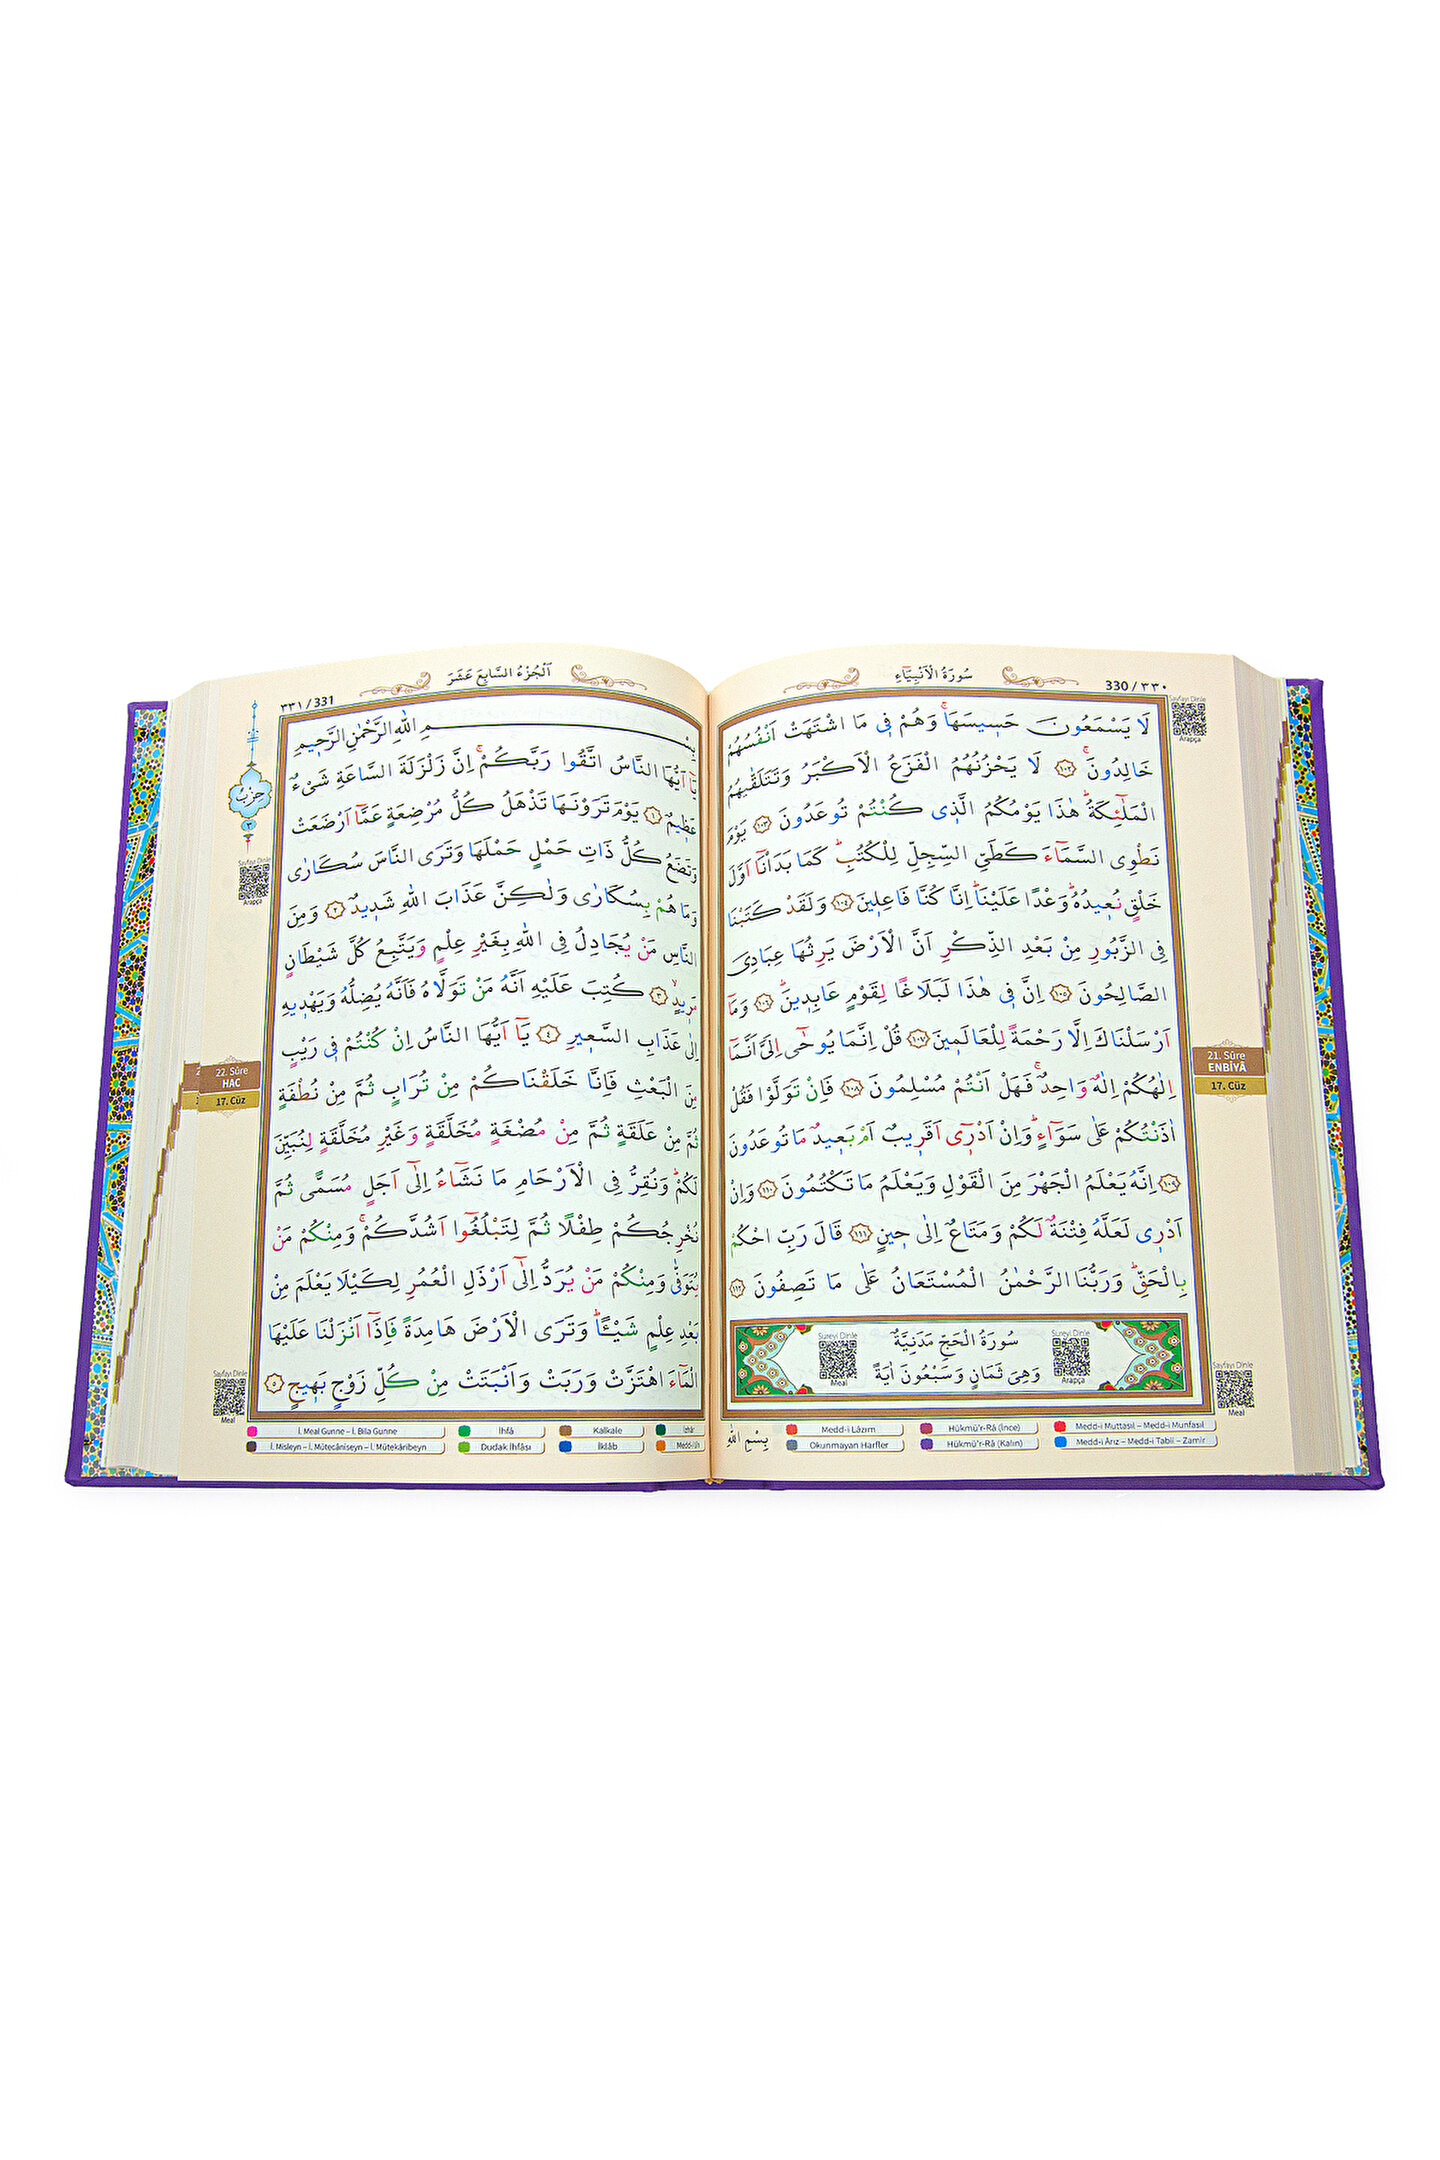 سُورَةُ الْاَنْبِيَٓاءِ
330 / ٣٣٠
لَا يَسْمَعُونَ حَسٖيسَهَاۚ وَهُمْ فٖى مَا اشْتَهَتْ اَنْفُسُهُمْ
خَالِدُونَۚ ﴿١٠٢﴾ لَا يَحْزُنُهُمُ الْفَزَعُ الْاَكْبَرُ وَتَتَلَقّٰيهُمُ
الْمَلٰٓئِكَةُؕ هٰذَا يَوْمُكُمُ الَّذٖى كُنْتُمْ تُوعَدُونَ ﴿١٠٣﴾ يَوْمَ
نَطْوِى السَّمَٓاءَ كَطَيِّ السِّجِلِّ لِلْكُتُبِؕ كَمَا بَدَأْنَٓا اَوَّلَ
خَلْقٍ نُعٖيدُهُؕ وَعْدًا عَلَيْنَاؕ اِنَّا كُنَّا فَاعِلٖينَ ﴿١٠٤﴾ وَلَقَدْ كَتَبْنَا
فِى الزَّبُورِ مِنْ بَعْدِ الذِّكْرِ اَنَّ الْاَرْضَ يَرِثُهَا عِبَادِىَ
الصَّالِحُونَ ﴿١٠٥﴾ اِنَّ فٖى هٰذَا لَبَلَاغًا لِقَوْمٍ عَابِدٖينَؕ ﴿١٠٦﴾ وَمَٓا
اَرْسَلْنَاكَ اِلَّا رَحْمَةً لِلْعَالَمٖينَ ﴿١٠٧﴾ قُلْ اِنَّمَا يُوحٰٓى اِلَىَّ اَنَّمَٓا
اِلٰهُكُمْ اِلٰهٌ وَاحِدٌۚ فَهَلْ اَنْتُمْ مُسْلِمُونَ ﴿١٠٨﴾ فَاِنْ تَوَلَّوْا فَقُلْ
اٰذَنْتُكُمْ عَلٰى سَوَٓاءٍؕ وَاِنْ اَدْرٖٓى اَقَرٖيبٌ اَمْ بَعٖيدٌ مَا تُوعَدُونَ
﴿١٠٩﴾ اِنَّهُ يَعْلَمُ الْجَهْرَ مِنَ الْقَوْلِ وَيَعْلَمُ مَا تَكْتُمُونَ ﴿١١٠﴾ وَاِنْ
اَدْرٖى لَعَلَّهُ فِتْنَةٌ لَكُمْ وَمَتَاعٌ اِلٰى حٖينٍ ﴿١١١﴾ قَالَ رَبِّ احْكُمْ
بِالْحَقِّؕ وَرَبُّنَا الرَّحْمٰنُ الْمُسْتَعَانُ عَلٰى مَا تَصِفُونَ ﴿١١٢﴾
سُورَةُ الْحَجِّ مَدَنِيَّةٌ
وَهِىَ ثَمَانٍ وَسَبْعُونَ اٰيَةً
Sureyi Dinle
Meal
Sureyi Dinle
Arapça
Sayfayı Dinle
Arapça
21. Sûre
ENBİYÂ
17. Cüz
Sayfayı Dinle
Meal
بِسْمِ اللّٰهِ
Medd-i Lâzım
Hükmü'r-Râ (İnce)
Medd-i Muttasıl – Medd-i Munfasıl
Okunmayan Harfler
Hükmü'r-Râ (Kalın)
Medd-i Ârız – Medd-i Tabiî – Zamir
اَلْجُزْءُ السَّابِعَ عَشَرَ
٣٣١ / 331
بِسْمِ اللّٰهِ الرَّحْمٰنِ الرَّحٖيمِ
يَٓا اَيُّهَا النَّاسُ اتَّقُوا رَبَّكُمْۚ اِنَّ زَلْزَلَةَ السَّاعَةِ شَىْءٌ
عَظٖيمٌ ﴿١﴾ يَوْمَ تَرَوْنَهَا تَذْهَلُ كُلُّ مُرْضِعَةٍ عَمَّٓا اَرْضَعَتْ
وَتَضَعُ كُلُّ ذَاتِ حَمْلٍ حَمْلَهَا وَتَرَى النَّاسَ سُكَارٰى
وَمَا هُمْ بِسُكَارٰى وَلٰكِنَّ عَذَابَ اللّٰهِ شَدٖيدٌ ﴿٢﴾ وَمِنَ
النَّاسِ مَنْ يُجَادِلُ فِى اللّٰهِ بِغَيْرِ عِلْمٍ وَيَتَّبِعُ كُلَّ شَيْطَانٍ
مَرٖيدٍۙ ﴿٣﴾ كُتِبَ عَلَيْهِ اَنَّهُ مَنْ تَوَلَّاهُ فَاَنَّهُ يُضِلُّهُ وَيَهْدٖيهِ
اِلٰى عَذَابِ السَّعٖيرِ ﴿٤﴾ يَٓا اَيُّهَا النَّاسُ اِنْ كُنْتُمْ فٖى رَيْبٍ
مِنَ الْبَعْثِ فَاِنَّا خَلَقْنَاكُمْ مِنْ تُرَابٍ ثُمَّ مِنْ نُطْفَةٍ
ثُمَّ مِنْ عَلَقَةٍ ثُمَّ مِنْ مُضْغَةٍ مُخَلَّقَةٍ وَغَيْرِ مُخَلَّقَةٍ لِنُبَيِّنَ
لَكُمْؕ وَنُقِرُّ فِى الْاَرْحَامِ مَا نَشَٓاءُ اِلٰٓى اَجَلٍ مُسَمًّى ثُمَّ
نُخْرِجُكُمْ طِفْلًا ثُمَّ لِتَبْلُغُٓوا اَشُدَّكُمْۚ وَمِنْكُمْ مَنْ
يُتَوَفّٰى وَمِنْكُمْ مَنْ يُرَدُّ اِلٰٓى اَرْذَلِ الْعُمُرِ لِكَيْلَا يَعْلَمَ مِنْ
بَعْدِ عِلْمٍ شَيْـًٔاؕ وَتَرَى الْاَرْضَ هَامِدَةً فَاِذَٓا اَنْزَلْنَا عَلَيْهَا
الْمَٓاءَ اهْتَزَّتْ وَرَبَتْ وَاَنْبَتَتْ مِنْ كُلِّ زَوْجٍ بَهٖيجٍ ﴿٥﴾
حزب
٣
Sayfayı Dinle
Arapça
22. Sûre
HAC
17. Cüz
Sayfayı Dinle
Meal
İ. Meal Gunne – İ. Bila Gunne
İhfâ
Kalkale
İzhâr
İ. Misleyn – İ. Mütecâniseyn – İ. Mütekâribeyn
Dudak İhfâsı
İklâb
Medd-i Lîn